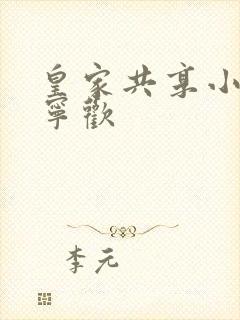 皇家共享小
寧歡
李元